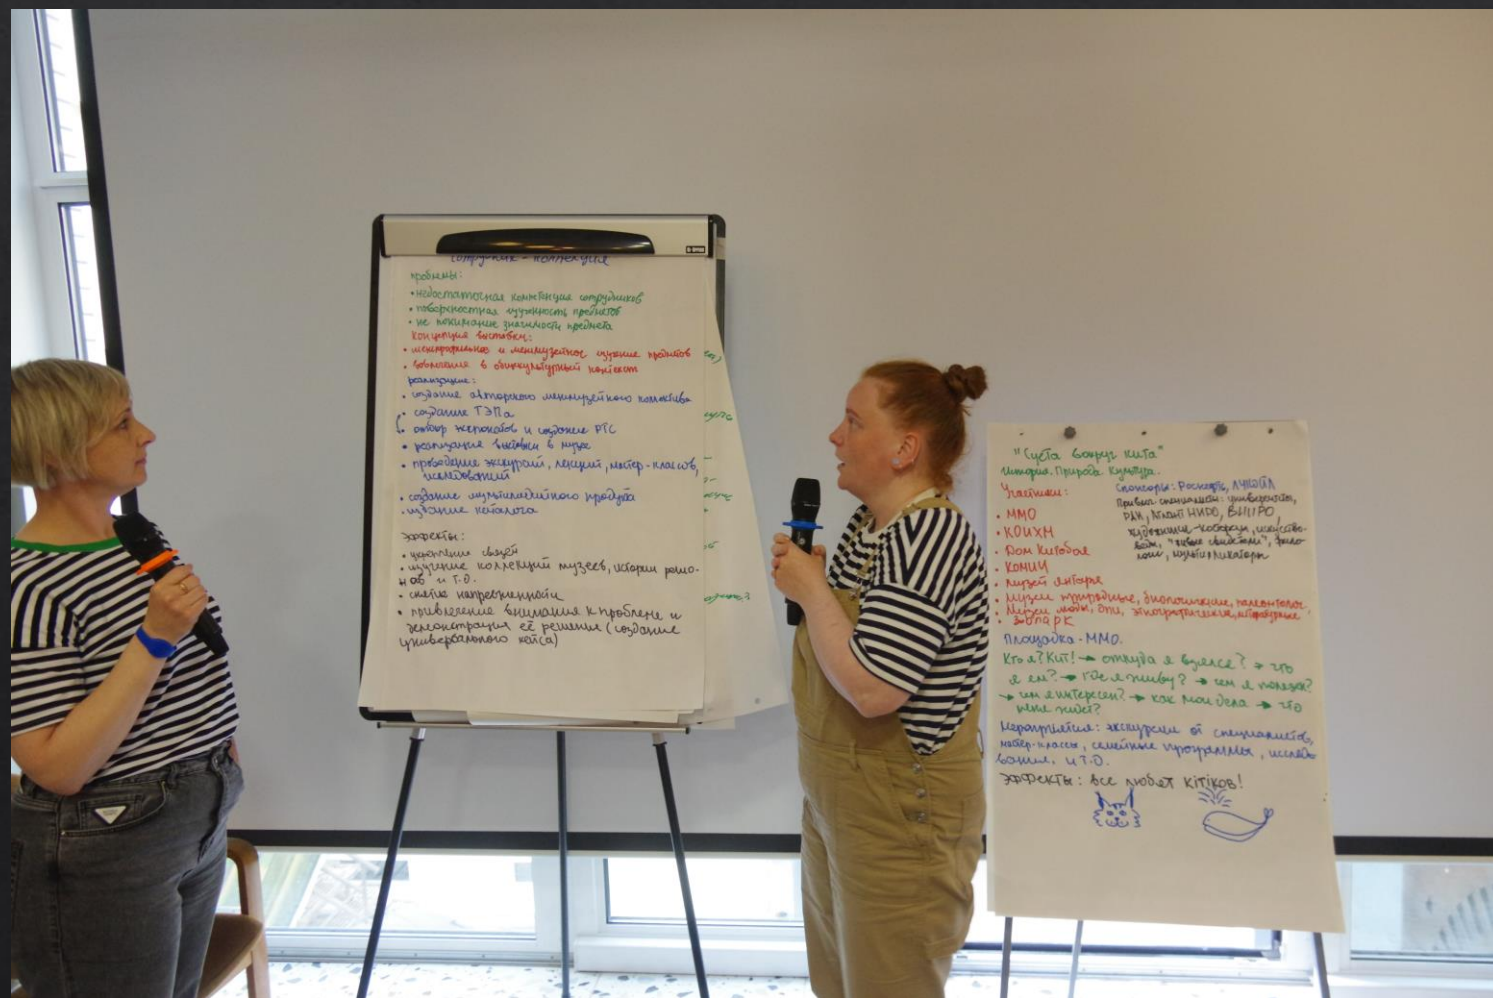 сотрудник - коллекция
проблемы:
• недостаточная компетенция сотрудников
• поверхностная изученность предметов
• не понимание значимости предмета
концепция выставки:
• межпрофильное и межмузейное изучение предметов
• вовлечение в общекультурный контекст
реализация:
• создание авторского межмузейного коллектива
• создание ТЭПа
• отбор экспонатов и создание РТС
• реализация выставки в музее
• проведение экскурсий, лекций, мастер-классов,
исследований
• создание мультимедийного продукта
• издание каталога
Эффекты:
• укрепление связей
• изучение коллекций музеев, истории регио-
нов и т.д.
• снятие напряженности
• привлечение внимания к проблеме и
демонстрация её решения (создание
универсального кейса)
"Суета вокруг кита"
История. Природа. Культура.
Участники:
• ММО
• КОИХМ
• Дом Китобоя
• КОМИИ
• Музей янтаря
• Музеи природные, биологические, палеонтолог.
• Музеи моды, быта, этнографические,
• Зоопарк
Спонсоры: Роснефть, ЛУКОЙЛ
Привлеч. специалисты: университеты,
РАН, АтлантНИРО, ВНИРО,
художники-
"живые свидетели",
мультипликаторы
Площадка - ММО.
Кто я? Кит! → откуда я взялся? → что
я ем? → где я живу? → чем я полезен?
→ чем я интересен? → как мои дела → что
меня ждёт?
Мероприятия: экскурсии от специалистов,
мастер-классы, семейные программы, исследо-
вания, и т.д.
Эффекты: все любят кітіков!